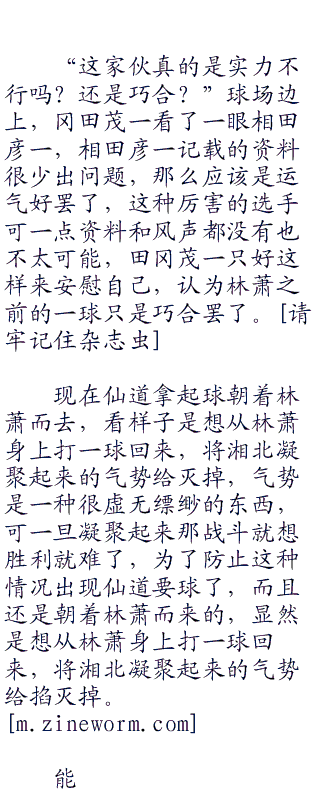 “这家伙真的是实力不
行吗？还是巧合？”球场边
上，冈田茂一看了一眼相田
彦一，相田彦一记载的资料
很少出问题，那么应该是运
气好罢了，这种厉害的选手
可一点资料和风声都没有也
不太可能，田冈茂一只好这
样来安慰自己，认为林萧之
前的一球只是巧合罢了。[请
牢记住杂志虫]
现在仙道拿起球朝着林
萧而去，看样子是想从林萧
身上打一球回来，将湘北凝
聚起来的气势给灭掉，气势
是一种很虚无缥缈的东西，
可一旦凝聚起来那战斗就想
胜利就难了，为了防止这种
情况出现仙道要球了，而且
还是朝着林萧而来的，显然
是想从林萧身上打一球回
来，将湘北凝聚起来的气势
给掐灭掉。
[m.zineworm.com]
能